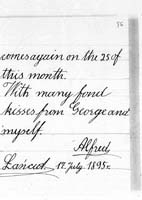 36
comes again on the 25 of
this month.
With many fond
kisses from George and
myself.
Alfred
Łańcut 17. July 1895.